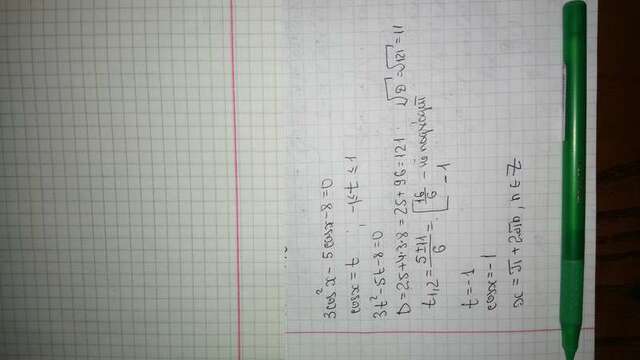 3cos²x - 5cosx - 8 = 0
cosx = t ; -1 ≤ t ≤ 1
3t² - 5t - 8 = 0
D = 25 + 4·3·8 = 25 + 96 = 121 √D = √121 = 11
t₁,₂ = (5 ± 11)/6 = [ 16/6 - не подходит
-1
t = -1
cosx = -1
x = π + 2πn, n ∈ Z